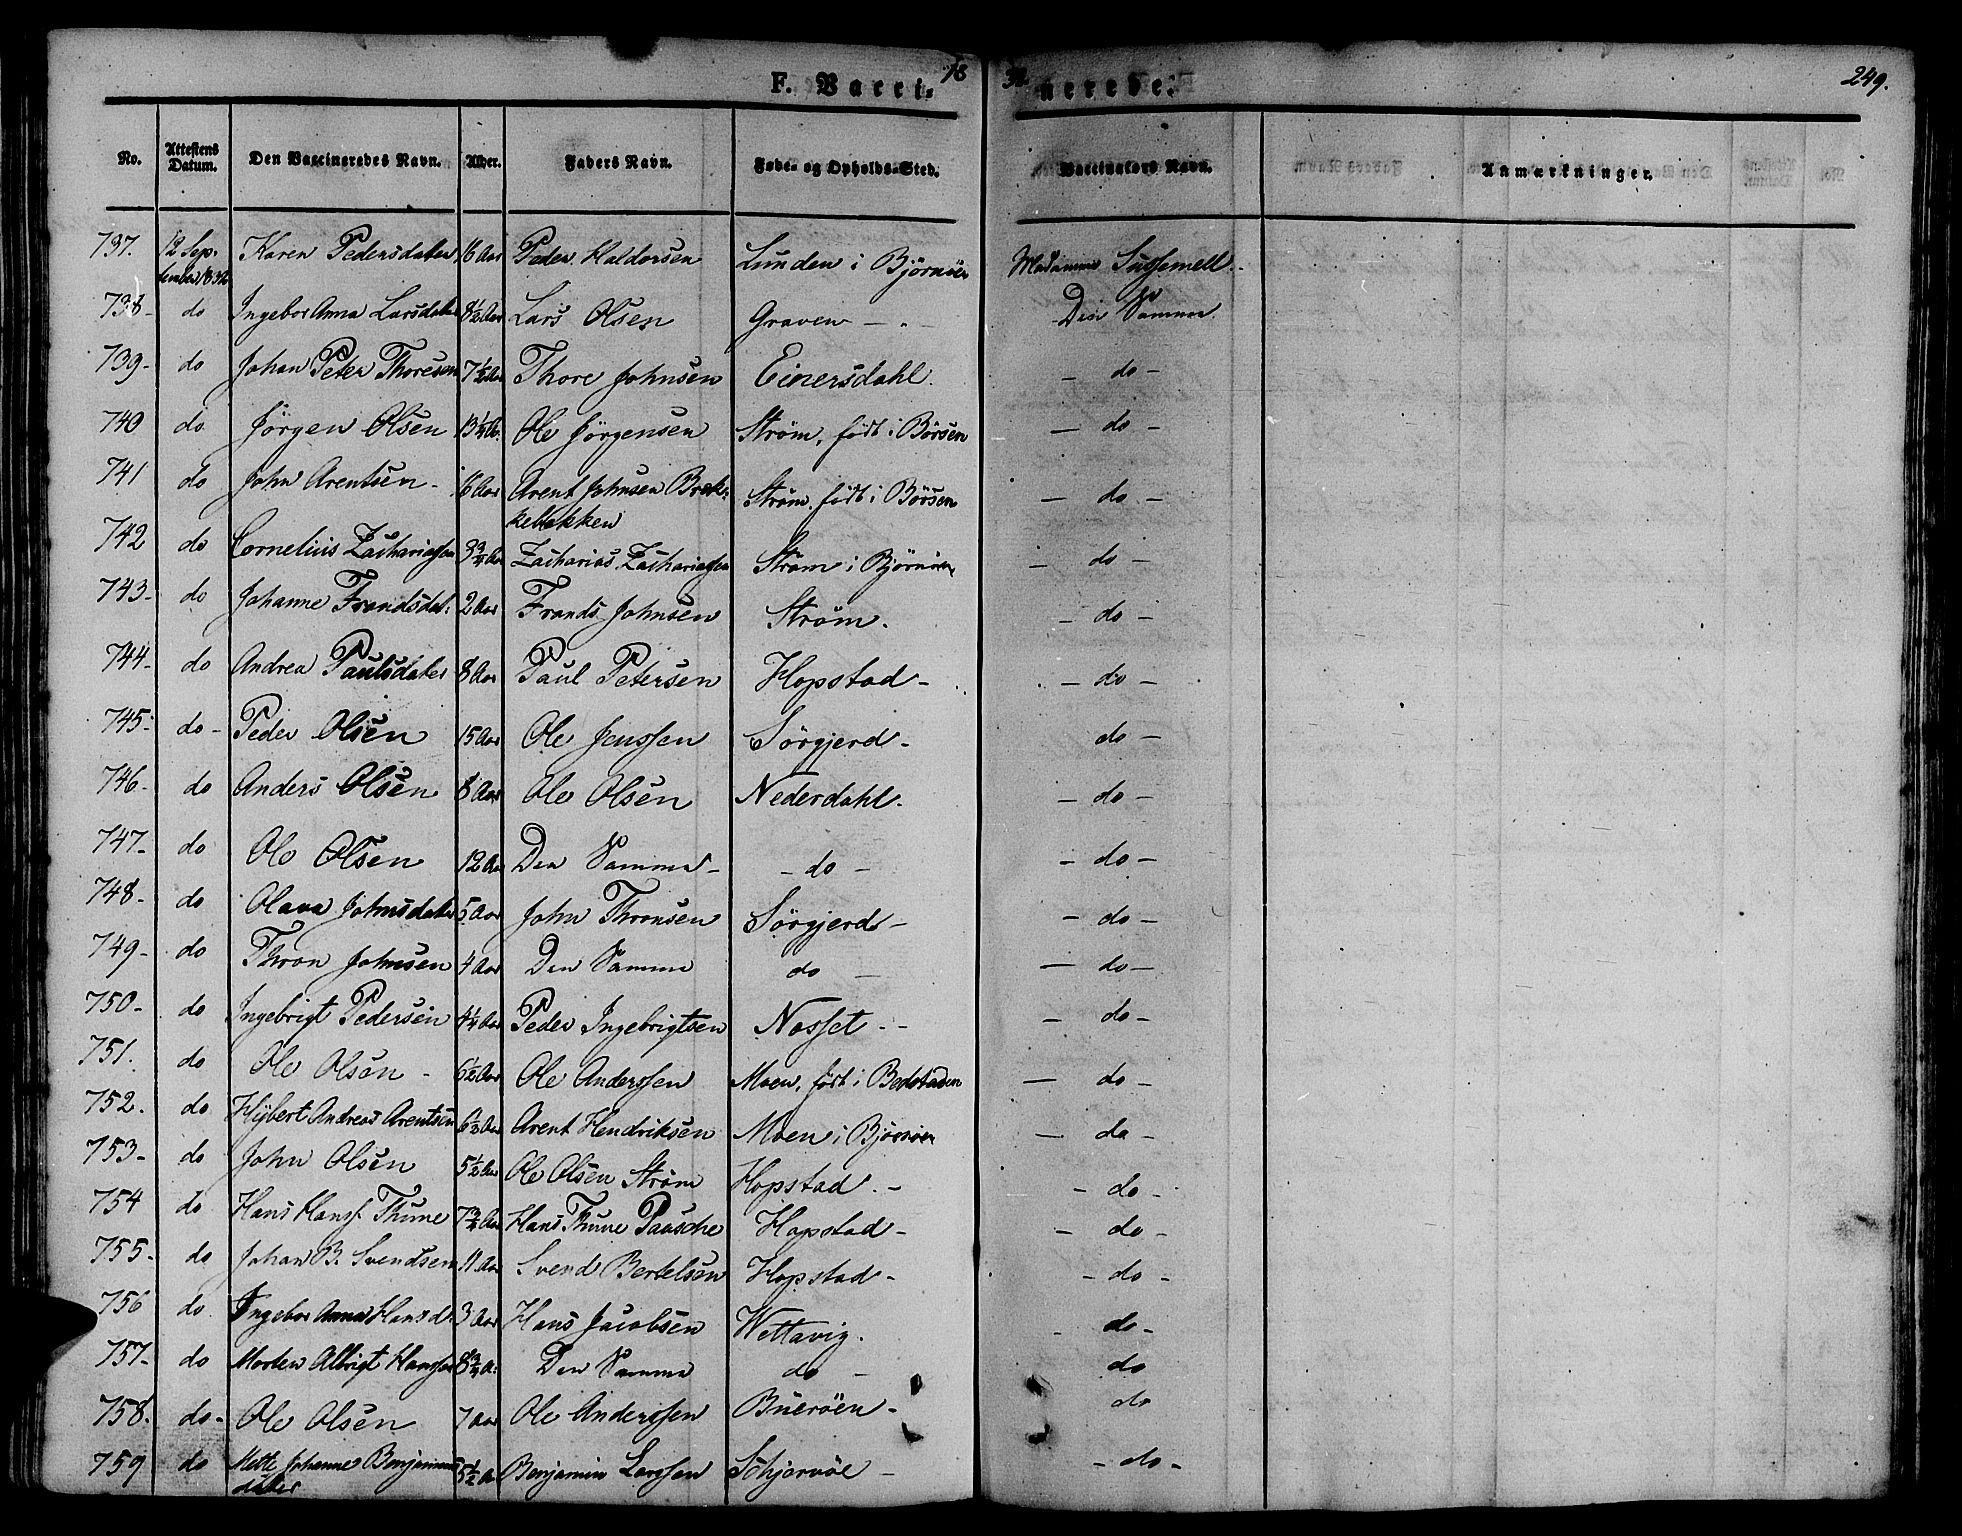 F. Vacci- 18
32 nerede. 249.
No. Attestens Datum. Den Vaccineredes Navn. Alder. Faders Navn. Føde- og Opholds-Sted. Vaccinators Navn. Anmærkninger.
737. 12 Sep- Karen Pedersdater 16 Aar Peder Haldorsen Lunden i Bjørnøer Madamme Sussemell.
tember 1832
738- do Ingebor Anna Larsdater 8½ Aar Lars Olsen Graven - " - Den Samme.
739- do Johan Peter Thoresen 7½ Aar Thore Johnsen Einersdahl. - do -
740 do Jörgen Olsen 13¼ A. Ole Jörgensen Strøm, født i Børsen - do -
741 do John Arentsen - 16 Aar Arent Johnsen Brek- Strøm, født i Børsen - do -
kebakken
742 do Cornelius Zachariassen 3¾ Aar Zacharias Zachariassen Strøm i Bjørnøer - do -
743- do Johanne Frandsdat: 2 Aar Frands Johnsen Strøm. - do -
744- do Andrea Paulsdater 8 Aar Paul Petersen Hopstad - - do -
745- do - Peder Olsen 15 Aar Ole Jenssen Sörgjerd - do -
746- do Anders Olsen 8 Aar Ole Olsen Nederdahl. - do -
747- do Ole Olsen 12 Aar Den Samme - - do - - do -
748- do Olava Johnsdater 5 Aar John Thronsen Sörgjerd - - do -
749- do Thron Johnsen 4 Aar Den Samme do - - do -
750- do Ingebrigt Pedersen 4¼ Aar Peder Ingebrigtsen Nosset - - - do -
751. do Ole Olsen - 6½ Aar Ole Anderssen Moen, født i Bedstaden - do -
752. do Hybert Andreas Arentsen 6½ Aar Arent Hendriksen Moen i Bjørnøer - do -
753- do John Olsen 5½ Aar Ole Olsen Strøm Hopstad. - - do -
754 do Hans Hansf. Thune 7¾ Aar Hans Thune Paasche Hopstad - - do -
755- do Johan B. Svendsen 11 Aar Svend Bertelsen Hopstad - - do -
756 do Ingebor Anna Hansd: 3 Aar Hans Jacobsen Wettavig. - do -
757- do Morten Albrigt Hanssen 8¾ A: Den Samme do - do
758. do - Ole Olsen 7 Aar Ole Anderssen Buerøen - do
759 do Mette Johanne Benjamins 5½ A Benjamin Larssen Schjervöe - - do -
dater